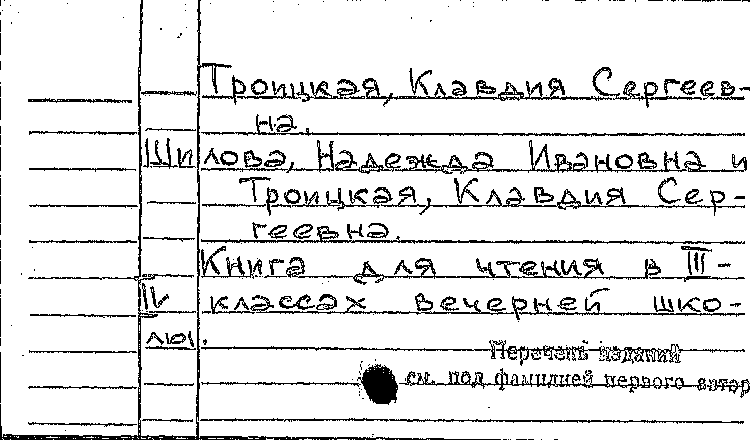 Троицкая, Клавдия Сергеев-
на.
Шилова, Надежда Ивановна и
Троицкая, Клавдия Сер-
геевна.
Книга для чтения в III-
IV классах вечерней шко-
лы.
Перечень изданий
см. под фамилией первого автор